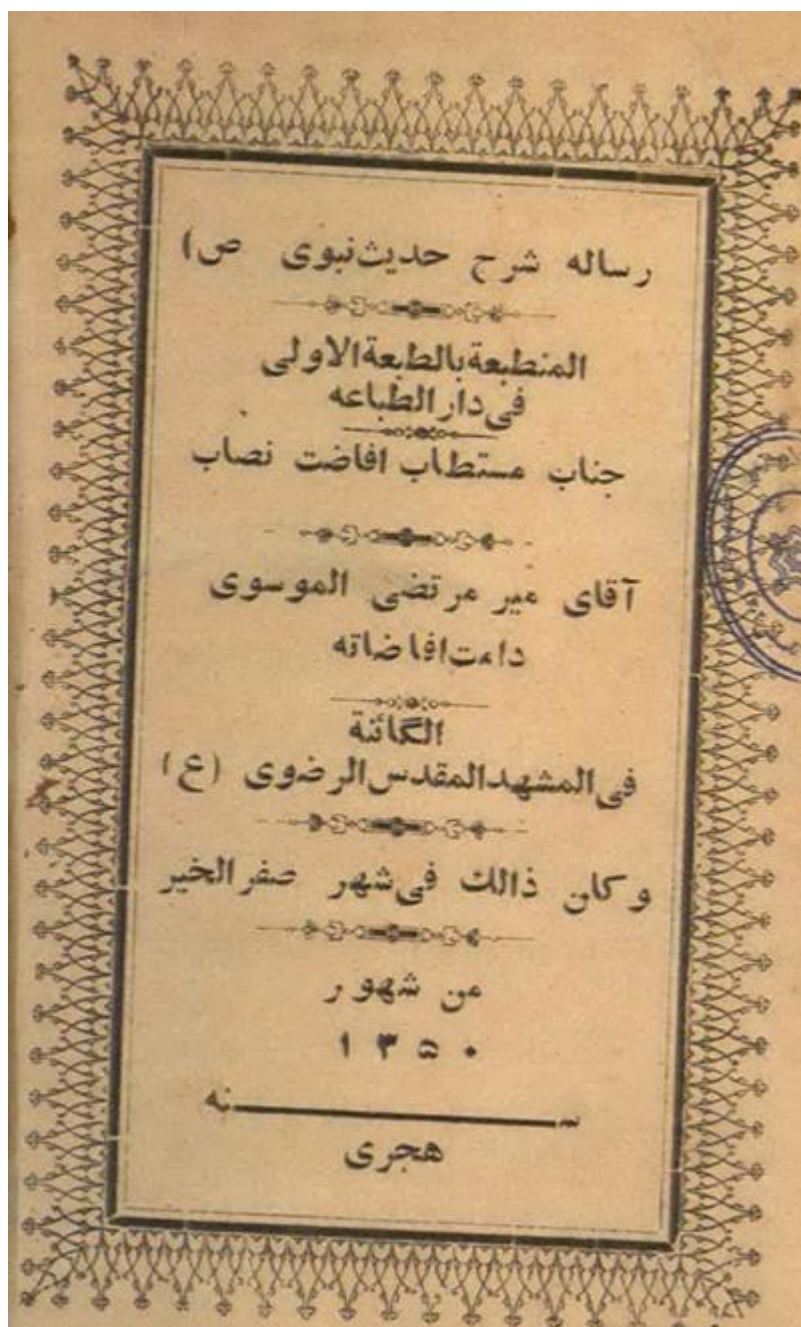 رساله شرح حدیث نبوی ص)
المنطبعة بالطبعة الاولی
فی دار الطباعه
جناب مستطاب افاضت نصاب
آقای میر مرتضی الموسوی
دامت افاضاته
الکائنة
فی المشهد المقدس الرضوی (ع)
و کان ذالك فی شهر صفر الخیر
من شهور
۱۳۵۰
سنه
هجری